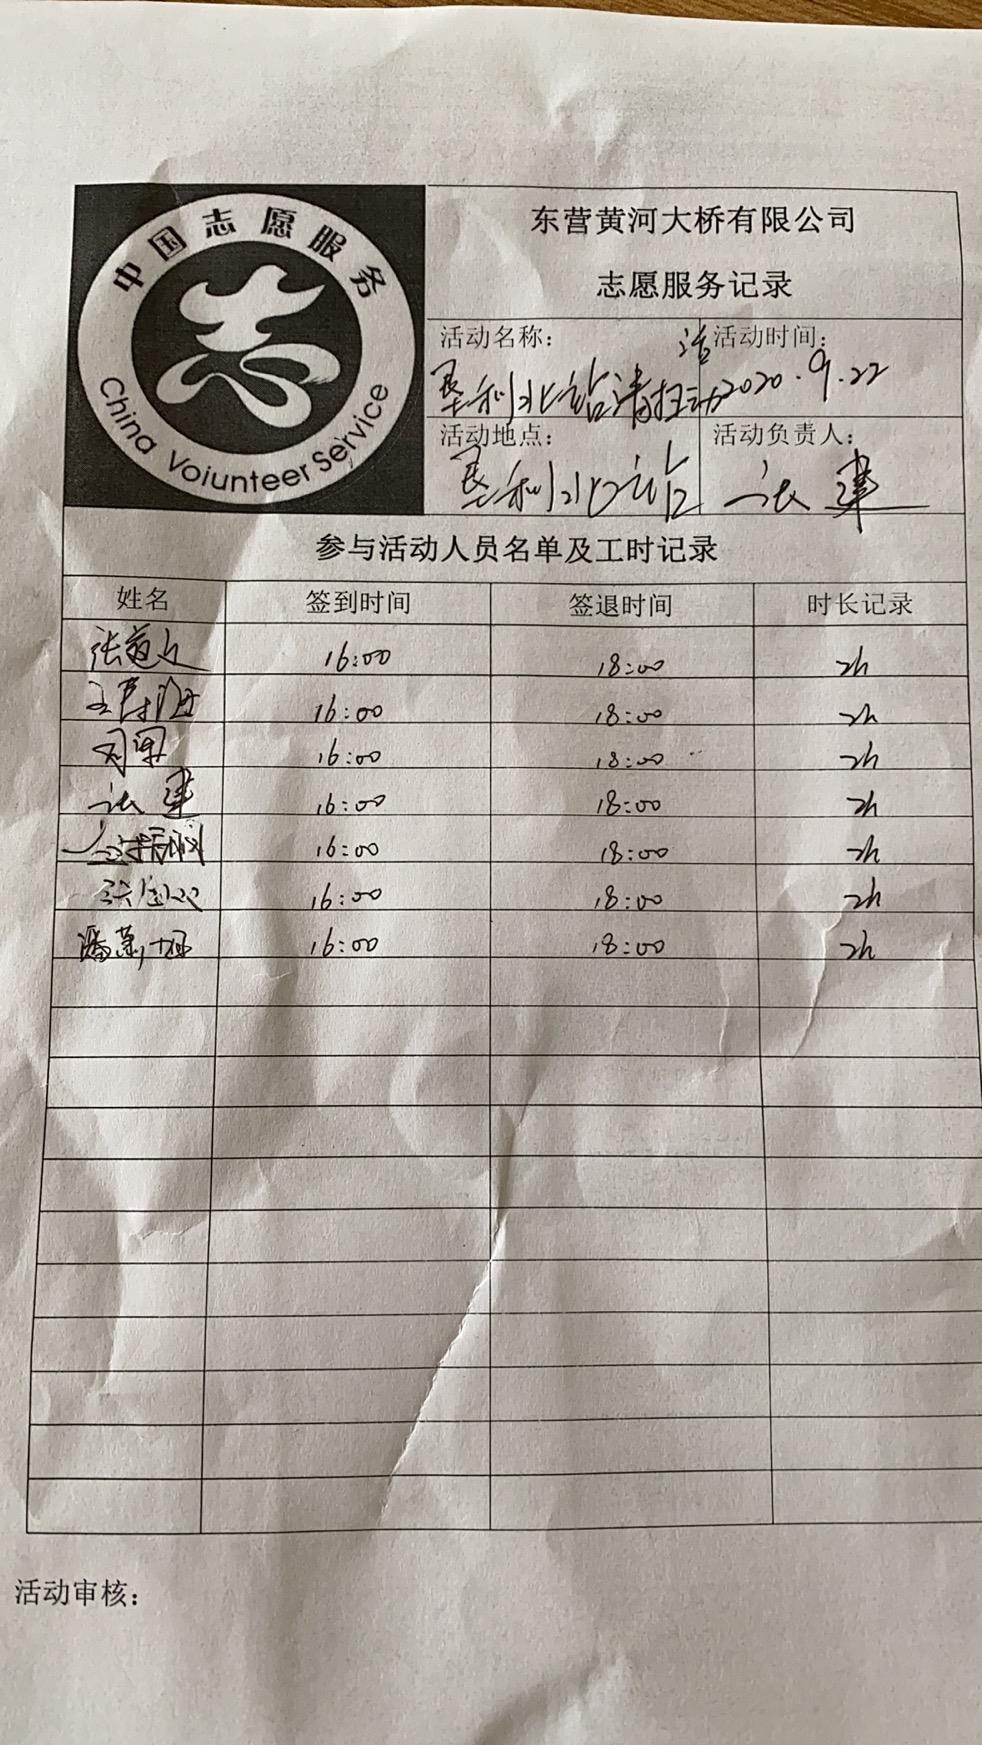 中国志愿服务
China Voiunteer Service
东营黄河大桥有限公司
志愿服务记录
活动名称：
垦利北站清扫活动
活动时间：
2020.9.22
活动地点：
垦利北站
活动负责人：
张建
参与活动人员名单及工时记录
姓名 签到时间 签退时间 时长记录
16:00 18:00 2h
16:00 18:00 2h
16:00 18:00 2h
张建 16:00 18:00 2h
16:00 18:00 2h
16:00 18:00 2h
16:00 18:00 2h
活动审核：